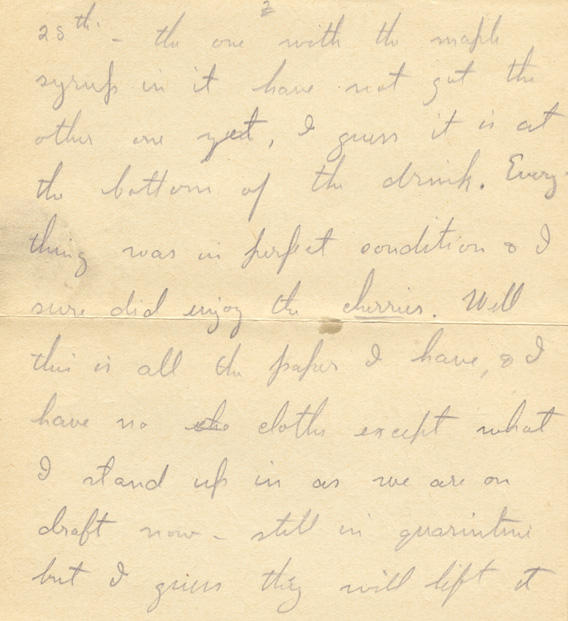 2
28th. - the one with the maple
syrup in it have not got the
other one yet, I guess it is at
the bottom of the drink. Every-
thing was in perfect condition & I
sure did enjoy the cherries. Well
this is all the paper I have, & I
have no cloths except what
I stand up in as we are on
draft now - still in quarintine
but I guess they will lift it